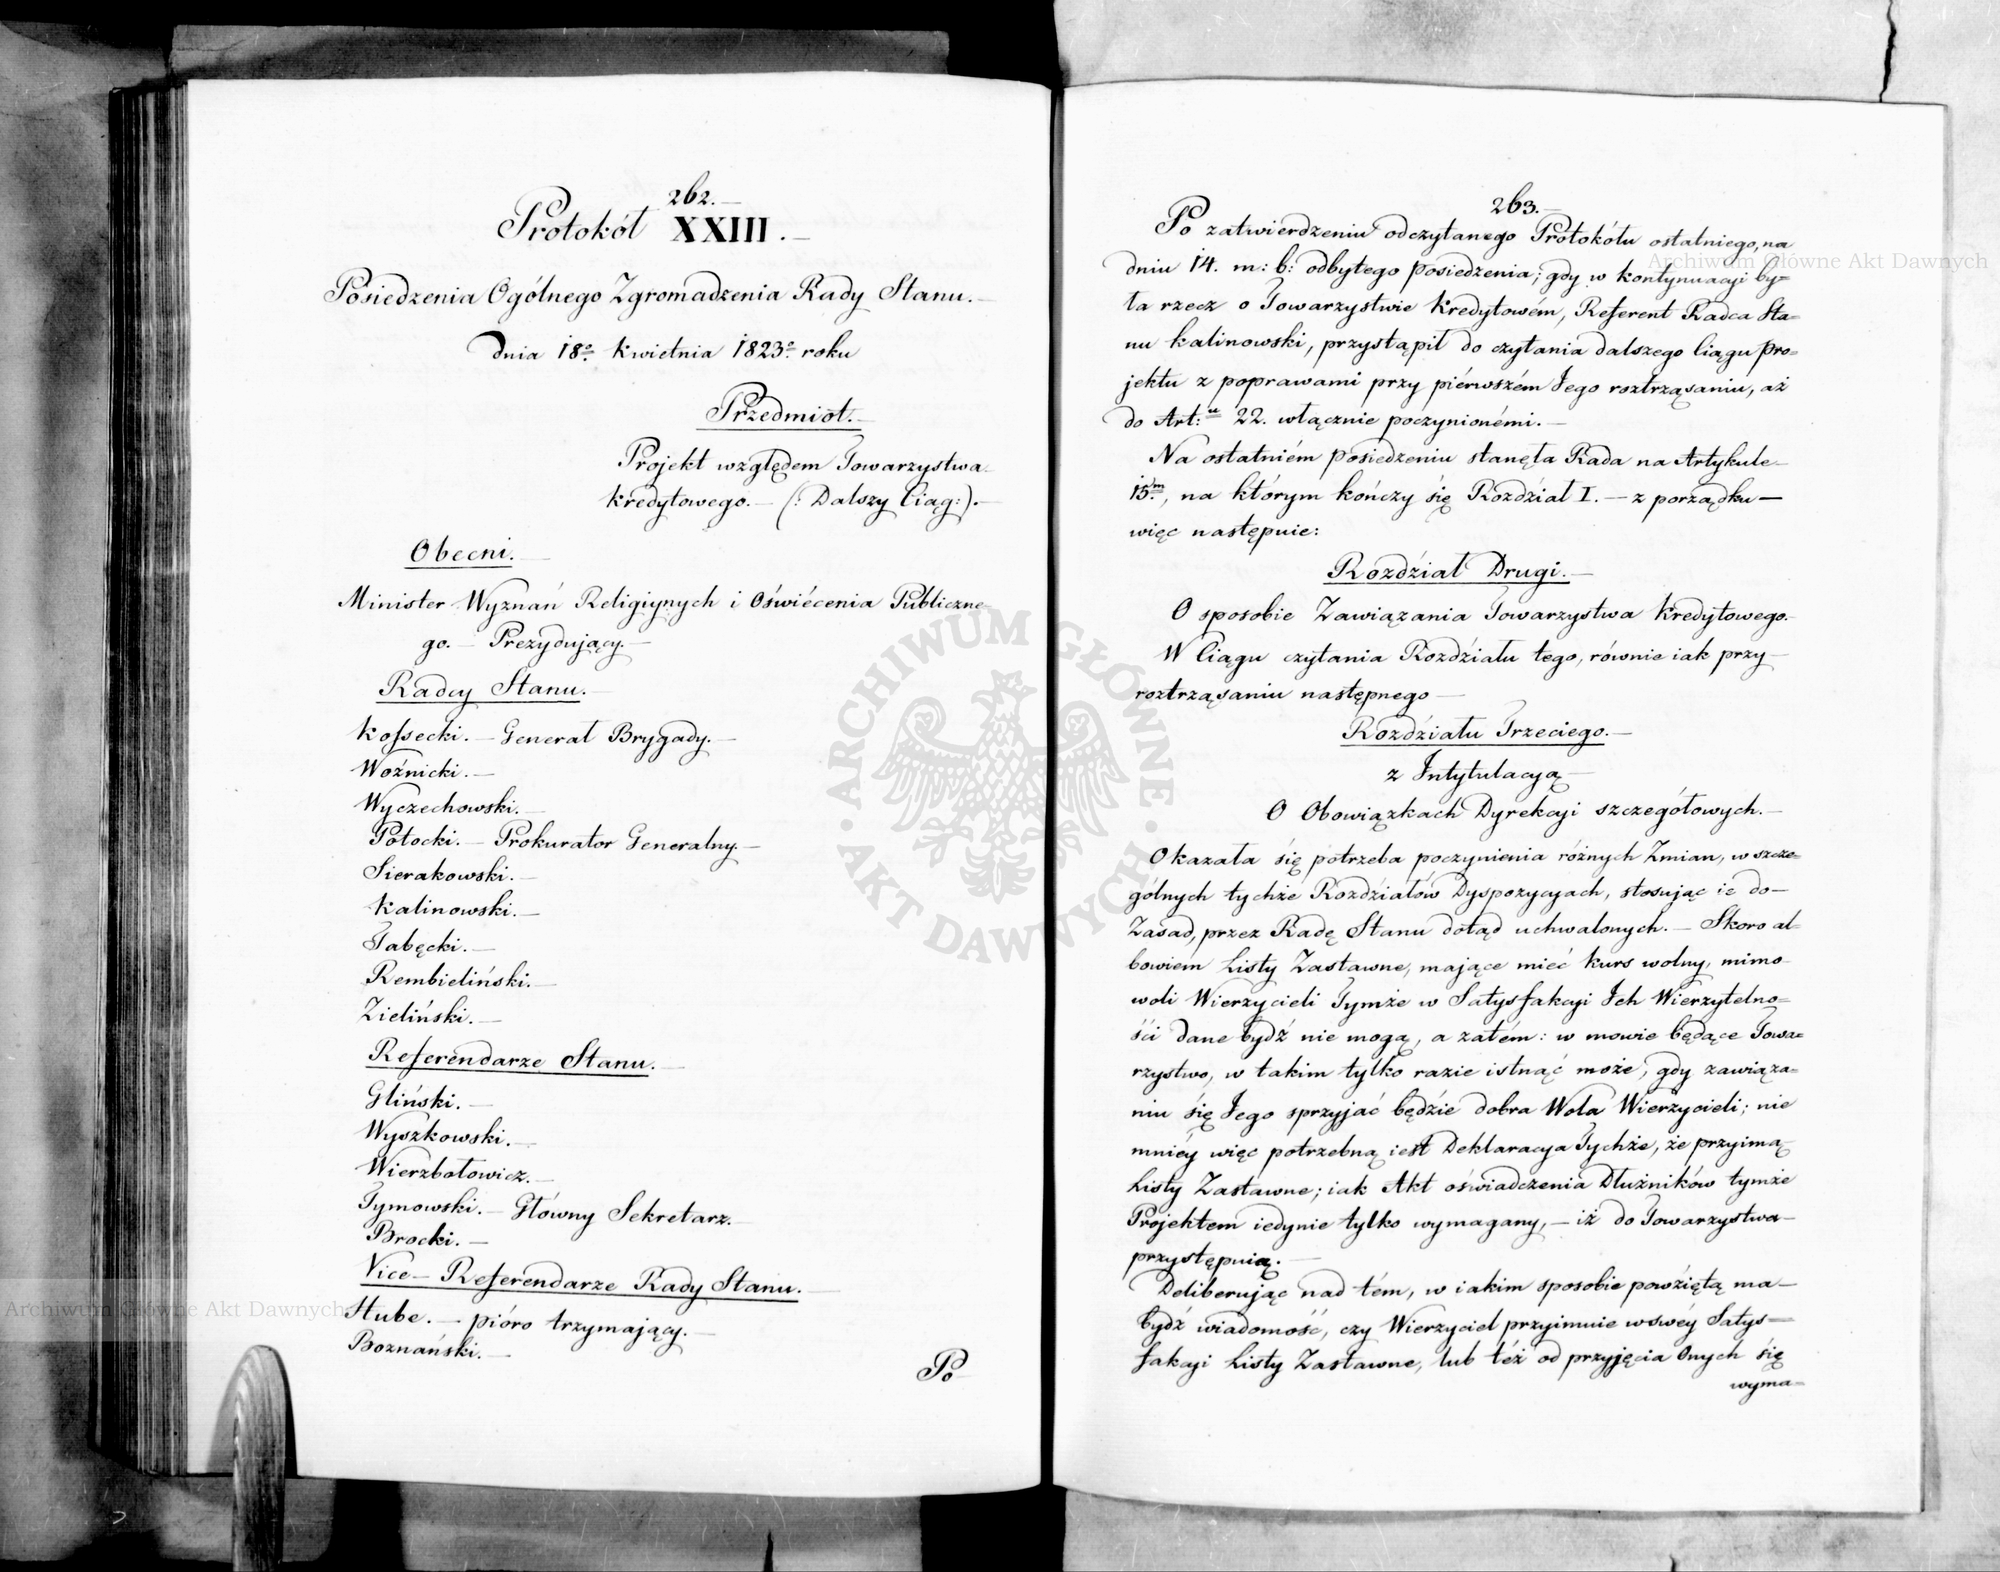 262.
Protokół XXIII.
Posiedzenia Ogólnego Zgromadzenia Rady Stanu.
Dnia 18º Kwietnia 1823º roku
Przedmiot.
Projekt względem Towarzystwa
Kredytowego. (: Dalszy Ciąg:).
Obecni.
Minister Wyznań Religiynych i Oświécenia Publiczne-
go. Prezydujący.
Radcy Stanu.
Kossecki. Generał Brygady.
Woźnicki.
Wyczechowski.
Potocki. Prokurator Generalny.
Sierakowski.
Kalinowski.
Tabęcki.
Rembieliński.
Zieliński.
Referendarze Stanu.
Gliński.
Wyszkowski.
Wierzbołowicz.
Tymowski. Główny Sekretarz.
Brocki.
Vice-Referendarze Rady Stanu.
Hube. pióro trzymający.
Boznański.
Po
263.
Po zatwierdzeniu odczytanego Protokółu ostatniego, na
dniu 14. m: b: odbytego posiedzenia; gdy w kontynuacji by=
ła rzecz o Towarzystwie Kredytowém, Referent Radca Sta=
nu Kalinowski, przystąpił do czytania dalszego Ciągu Pro=
jektu z poprawami przy piérwszém Jego roztrząsaniu, aż
do Art:u 22. włącznie poczynionémi.
Na ostatniém posiedzeniu stanęła Rada na Artykule
15.m, na którym kończy się Rozdział I. — z porządku
więc następuie:
Rozdział Drugi.
O sposobie Zawiązania Towarzystwa Kredytowego.
W Ciągu czytania Rozdziału tego, równie iak przy
roztrząsaniu następnego
Rozdziału Trzeciego.
z Intytulacyą
O Obowiązkach Dyrekcji szczegółowych.
Okazała się potrzeba poczynienia różnych Zmian, w szcze=
gólnych tychże Rozdziałów Dyspozycyach, stosując ie do
Zasad, przez Radę Stanu dotąd uchwalonych. — Skoro al=
bowiem Listy Zastawne, mające mieć kurs wolny, mimo
woli Wierzycieli Tymże w Satysfakcyi Ich Wierzytelno=
ści dane bydź nie mogą, a zatém: w mowie będące Towa=
rzystwo, w takim tylko razie istnąć może, gdy zawiąza=
niu się Jego sprzyjać będzie dobra Wola Wierzycieli; nie
mniéy więc potrzebną iest Deklaracya Tychże, że przyimą
Listy Zastawne; iak Akt oświadczenia Dłużników tymże
Projektem iedynie tylko wymagany, — iż do Towarzystwa
przystępuią.
Deliberując nad tém, w iakim sposobie powziętą ma
bydź wiadomość, czy Wierzyciel przyimuie w swéy Satys=
fakcyi Listy Zastawne, lub téż od przyjęcia Onych się
wyma=
Archiwum Główne Akt Dawnych
Archiwum Główne Akt Dawnych
ARCHIWUM GŁÓWNE AKT DAWNYCH